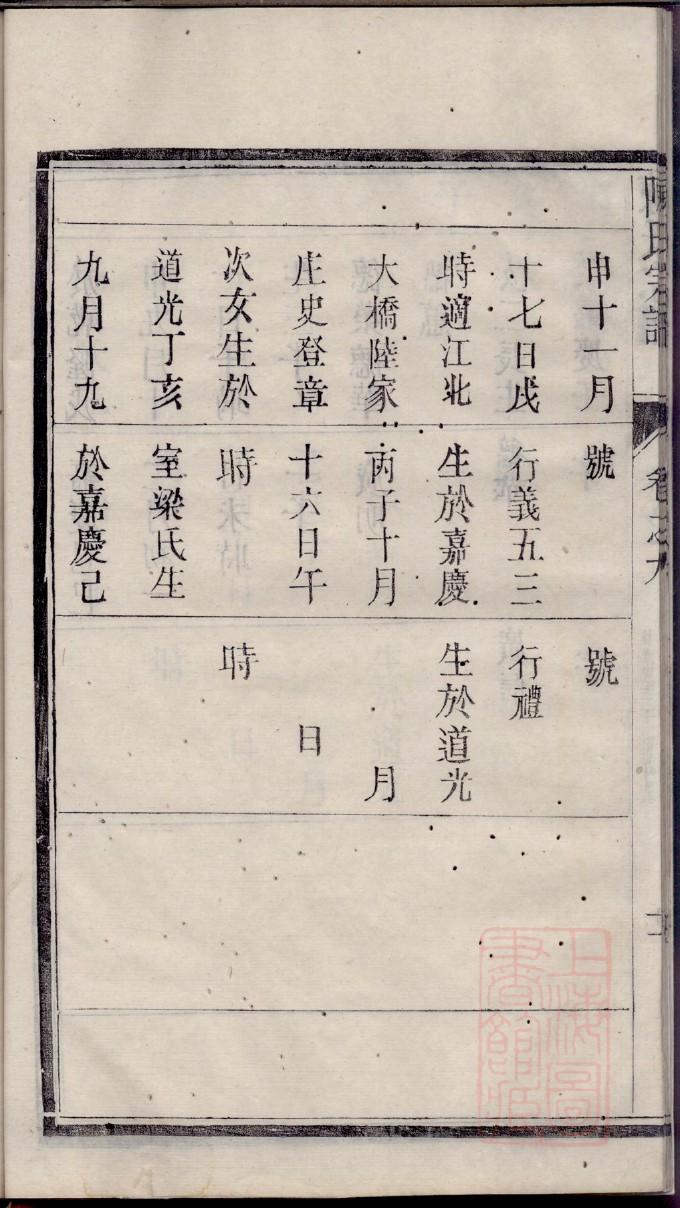 申十一月
十七日戌
時適江北
大橋陸家
庄史登章
次女生於
道光丁亥
九月十九
號
行義五三
生於嘉慶
丙子十月
十六日午
時
室梁氏生
於嘉慶己
號
行禮
生於道光
月
日
時
氏宗譜
卷之九
上海圖書館藏